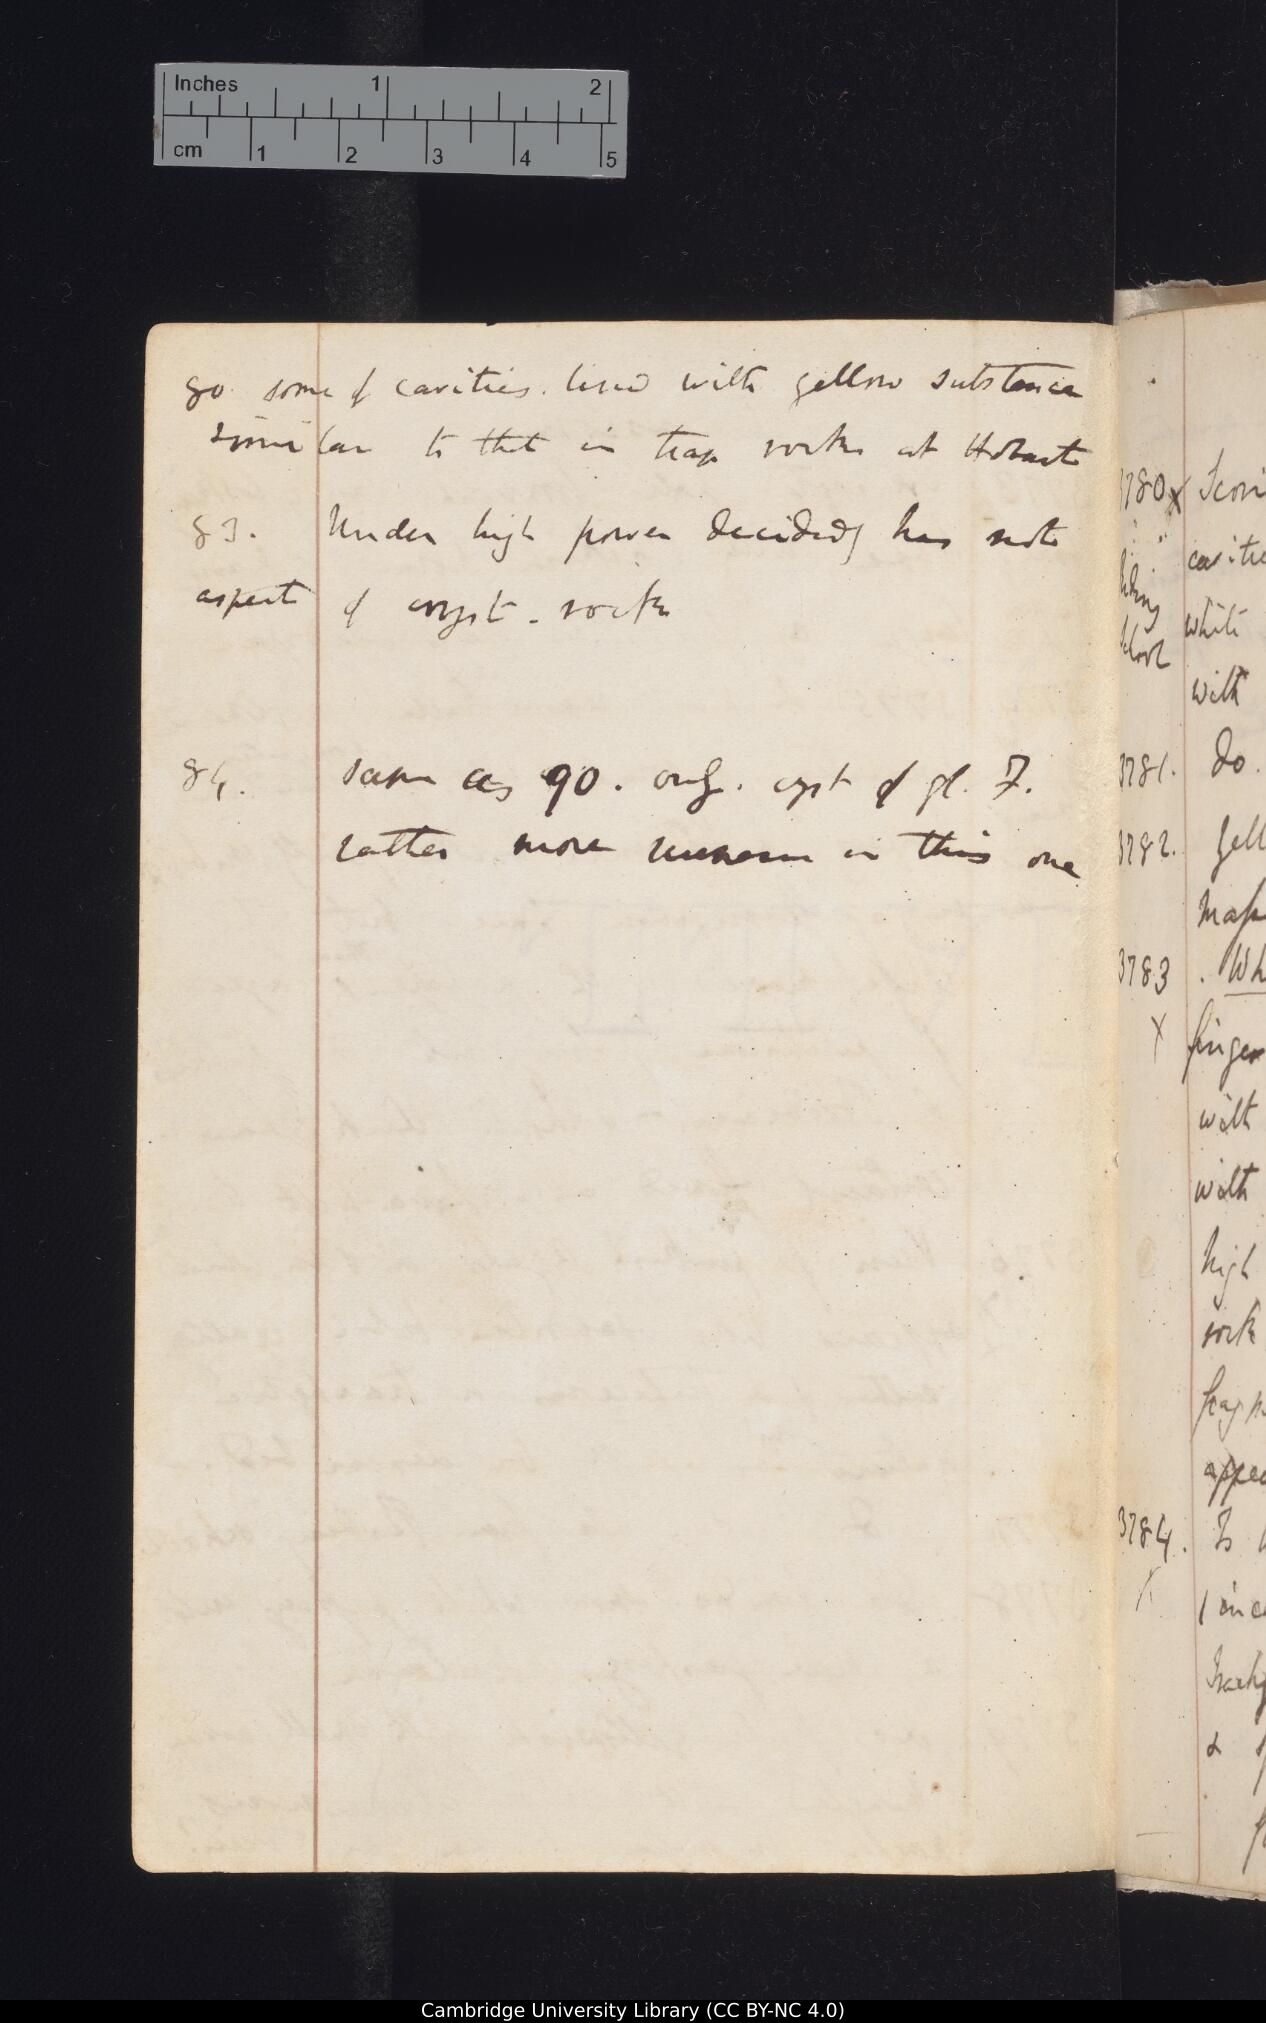 Inches 1 2
cm 1 2 3 4 5
80 some of cavities. lined with yellow substance
similar to that in trap rocks at Hobart
83. Under high power decidedly has not
aspect of cryst. rocks
84. same as 90. only. cryst of gl. F.
rather more numerous in this one
3780 x Scori
cavitie
white
with
3781. Do.
3782. Yell
Mass
3783 . Wh
X finger
with
with
high
rock
fragm
appea
3784. Is
X
&
Cambridge University Library (CC BY-NC 4.0)